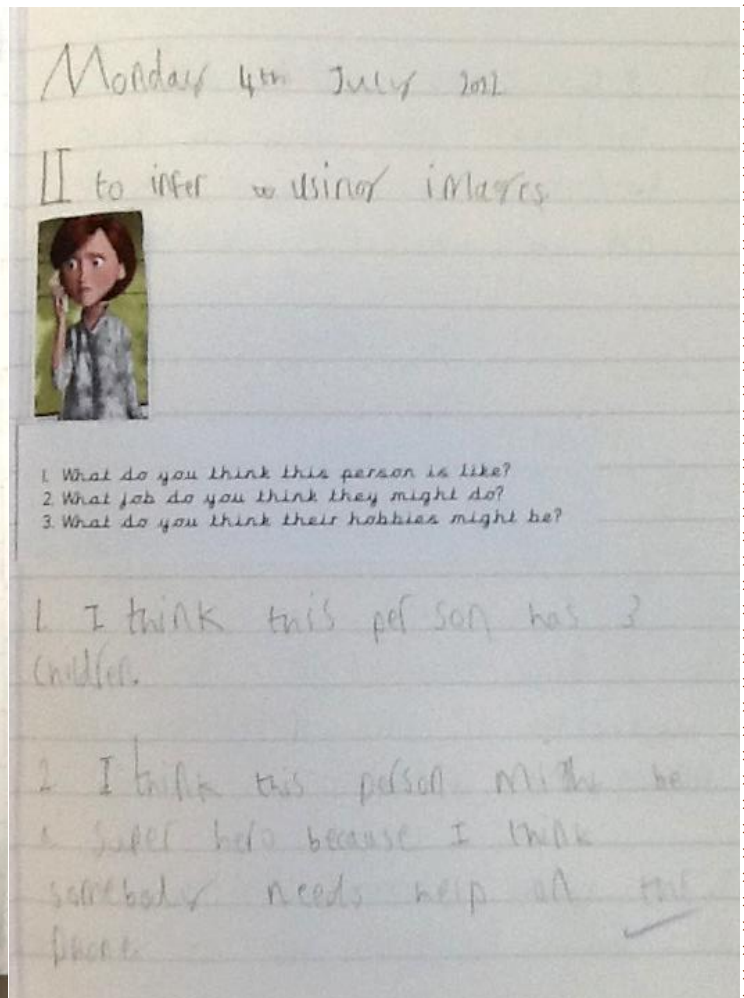 Monday 4th July 2022
LI to infer using images
1. What do you think this person is like?
2. What job do you think they might do?
3. What do you think their hobbies might be?
1. I think this person has 3
children.
2 I think this person might be
a super hero because I think
somebody needs help on the
phone.